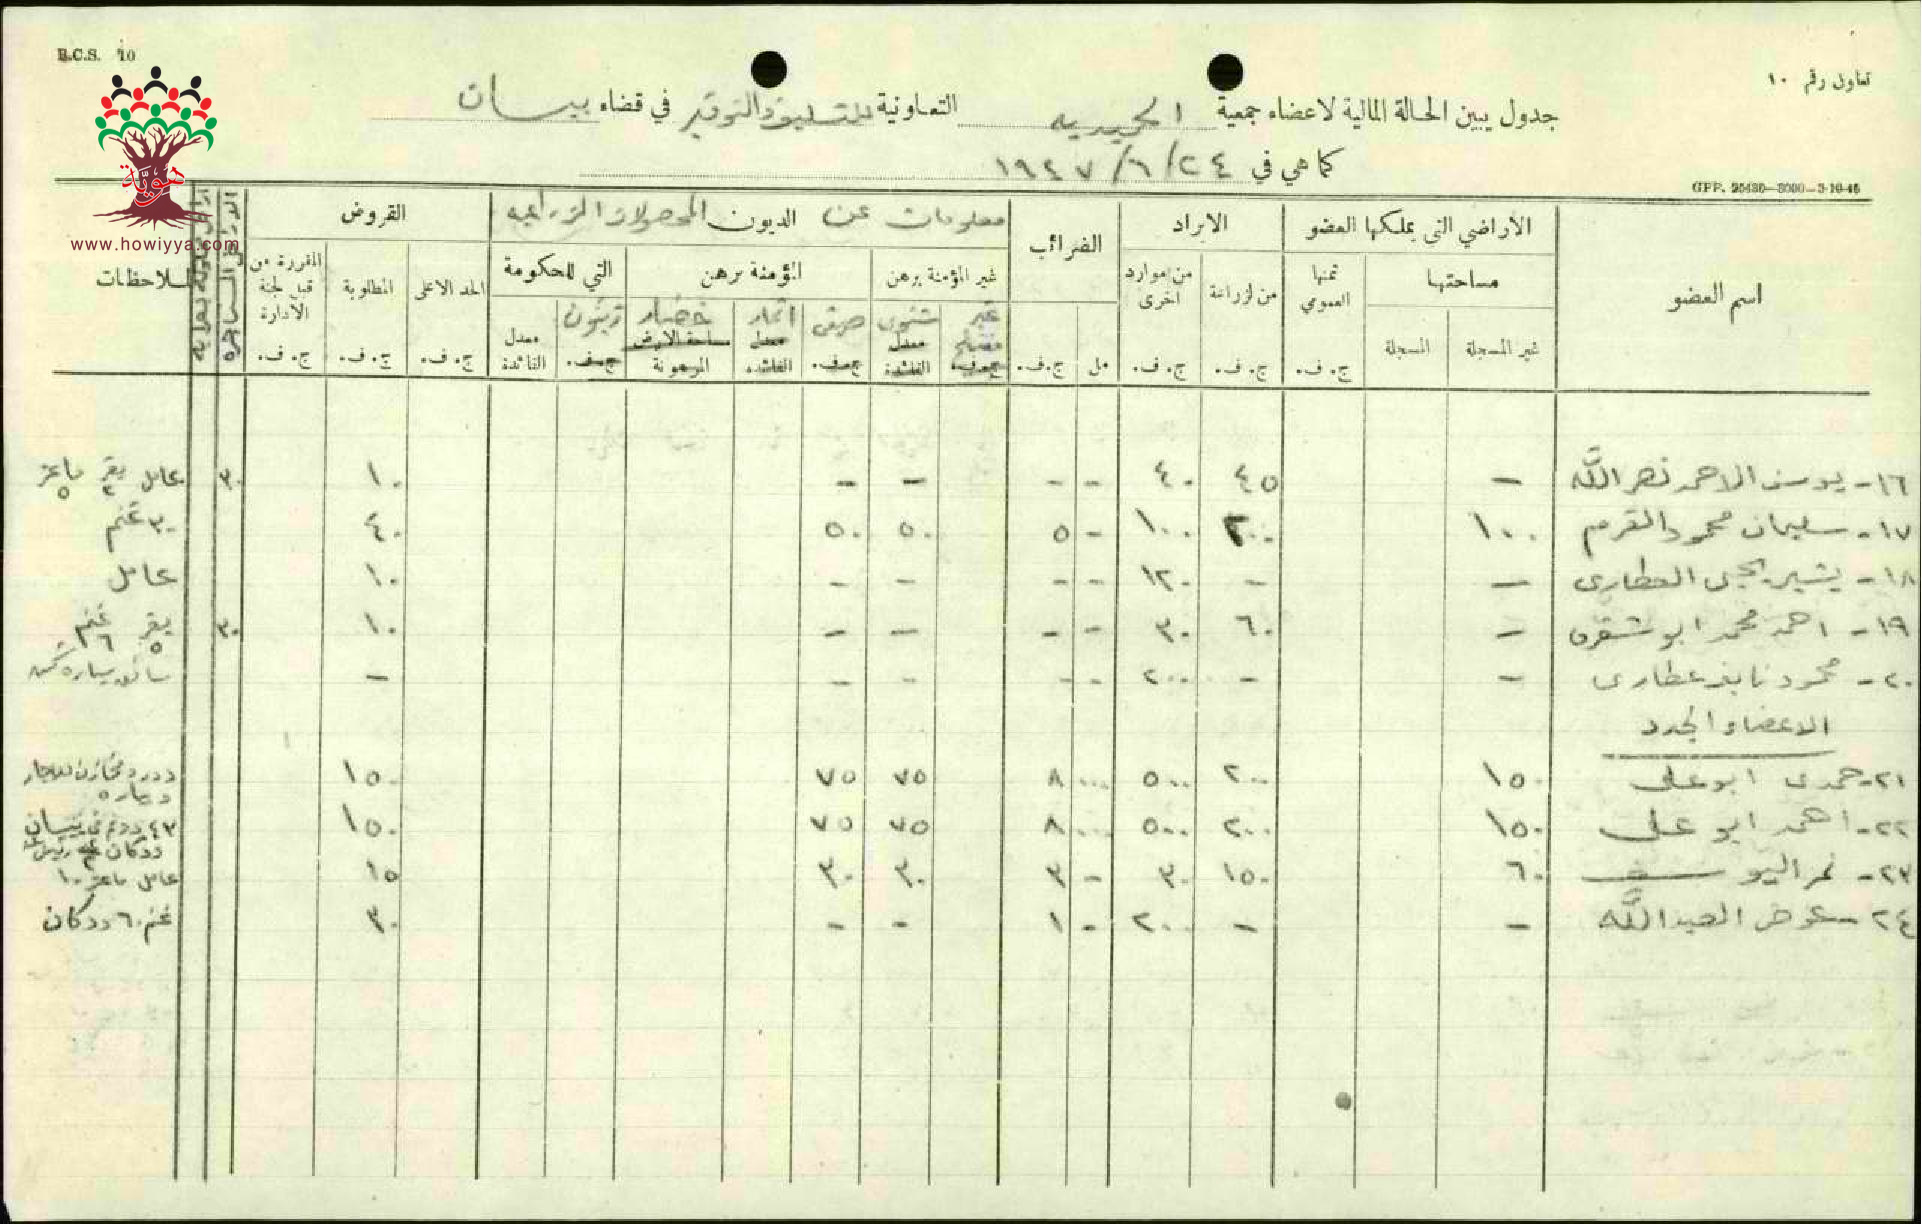 B.C.S. 10
تعاون رقم ١٠
جدول يبين الحالة المالية لاعضاء جمعية الحميديه التعاونية للتسليف والتوفير في قضاء بيسان
كما هي في ٢٤/٦/١٩٤٧
GPP. 25436—3000—3-10-45
www.howiyya.com
هوية
اسم العضو
الاراضي التي يملكها العضو
مساحتها
غير المسجلة
المسجلة
ثمنها العمومي
ج. ف.
الايراد
من الزراعة
ج. ف.
من موارد اخرى
ج. ف.
الضرائب
مل
ج. ف.
معلومات عن الديون المحصولات الزراعيه
غير المؤمنة برهن
غير
ج. ف.
شتوي
معدل الفائدة
المؤمنة برهن
صيفي
ج. ف.
اثمار
معدل الفائدة
خضار
مساحة الارض المرهونة
التي للحكومة
زيتون
ج. ف.
معدل الفائدة
القروض
الحد الاعلى
ج. ف.
المطلوبة
ج. ف.
المقررة من قبل لجنة الادارة
ج. ف.
الملاحظات
١٦- يوسف الاحمد نصر الله – ٤٥ ٤٠ – – – – ١٠ ٣٠ عامل بقر ٢ ماعز ٥
١٧- سليمان محمود القرم ١٠٠ ٢٠٠ ١٠٠ – ٥ ٥٠ ٥٠ ٤٠ ٣٠ غنم
١٨- يحيى العطاري – – ١٢٠ – – – – ١٠ عامل
١٩- احمد محمد ابو شقره – ٦٠ ٣٠ – – – – ١٠ ٣٠ بقر ٥ غنم ٦
٢٠- محمود نايف عطاري – – ٢٠٠ – – – – – سائق سياره
الاعضاء الجدد
٢١- حمدي ابو علي ١٥٠ ٢٠٠ ٥٠٠ ... ٨ ٧٥ ٧٥ ١٥٠
٢٢- احمد ابو علي ١٥٠ ٢٠٠ ٥٠٠ ... ٨ ٧٥ ٧٥ ١٥٠
٢٣- نمر اليوسف ٦٠ ١٥٠ ٣٠ – ٣ ٣٠ ٣٠ ١٥ عامل ماعز ١٠
٢٤- عوض العبدالله – – ٢٠٠ – ١ – – ٣٠ غنم ٦٠ ودكان